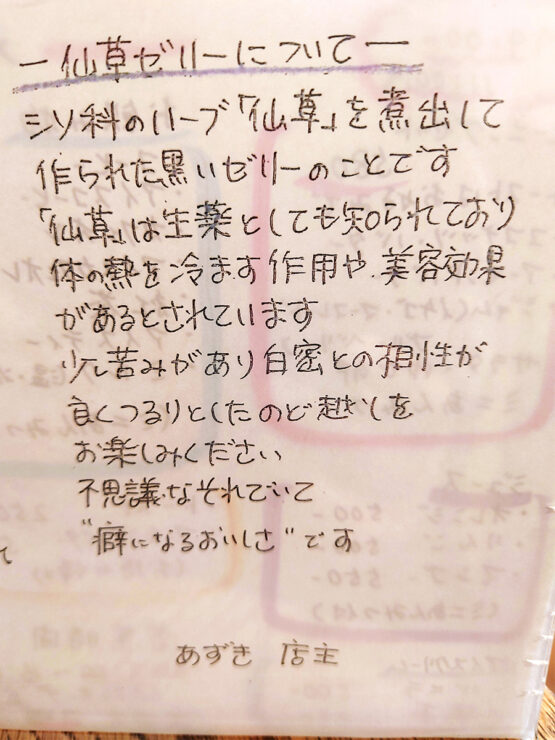 ー仙草ゼリーについてー
シソ科のハーブ「仙草」を煮出して
作られた黒いゼリーのことです
「仙草」は生薬としても知られており
体の熱を冷ます作用や美容効果
があるとされています
少し苦みがあり白密との相性が
良くつるりとしたのど越しを
お楽しみください
不思議なそれでいて
"癖になるおいしさ"です
あずき 店主